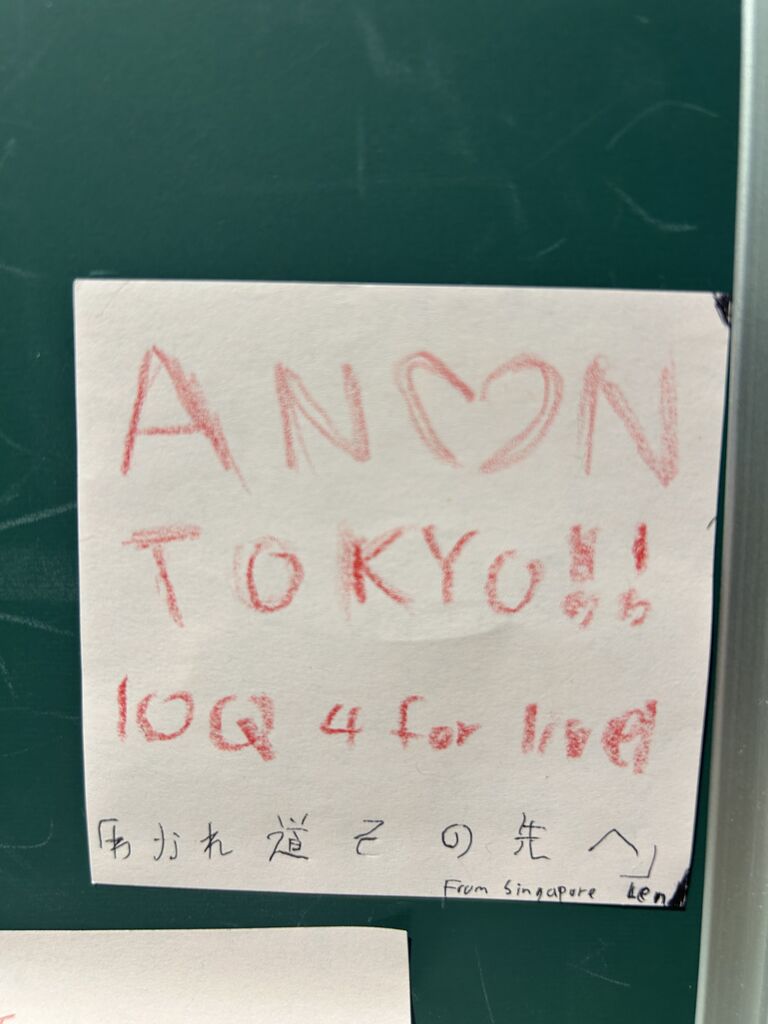 AN♡N
TOKYO!!
10Q 4 for live!
「わかれ道 その先へ」
From Singapore Len